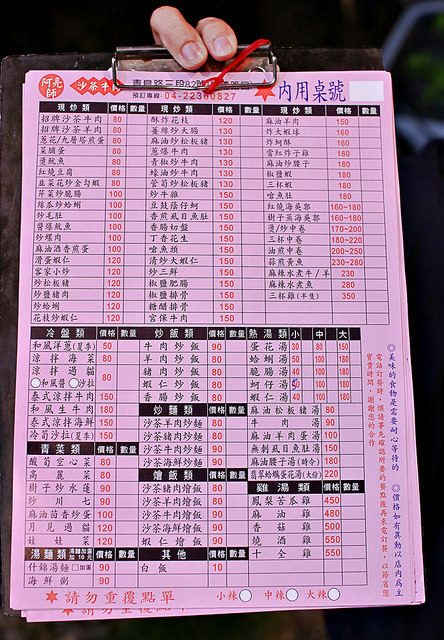 阿亮師 沙茶牛
青島路三段82號
預訂專線：04-22360827
內用桌號
現炒類 價格 數量 現炒類 價格 數量 現炒類 價格 數量
招牌沙茶牛肉 80 酥炸花枝 120 麻油羊肉 150
招牌沙茶羊肉 80 薑絲炒大腸 130 炸大蝦球 160
蔥花/九層塔煎蛋 80 麻油炒松板豬 130 炸蚵酥 160
菜脯蛋 80 蔥爆牛肉 130 雪紅炸子雞 180
燙魷魚 80 青椒炒牛肉 130 麻油炒腰子 180
紅燒豆腐 80 蠔油炒牛肉 130 椒鹽蝦 180
韭菜花炒金勾蝦 80 管筍炒松板豬 130 三杯蝦 180
芹菜炒脆腸 100 炒牛雜 150 嗆魚肚 180
絲瓜炒蛤蜊 100 豆豉蔭仔蚵 150 紅燒海吳郭 160~180
炒毛肚 100 香煎虱目魚肚 150 樹子蒸海吳郭 160~180
醬爆魷魚 100 香腸切盤 150 燙/炒中卷 170~200
炒螺肉 100 丁香花生 150 三杯中卷 180~220
麻油酒香煎蛋 100 嗆魚頭 150 油煎中卷 200~250
滑蛋蝦仁 120 清炒大蝦仁 150 蒜煎黃魚 230~280
客家小炒 120 炒三鮮 150 麻辣水煮牛/羊 230
炒松板豬 120 椒鹽肥腸 150 麻辣水煮魚 280
炒鹽豬肉 120 椒鹽排骨 150 三杯雞(半隻) 350
炒蛤蜊 120 糖醋排骨 150
花枝炒蝦仁 120 宮保牛肉 150
冷盤類 價格 數量 炒飯類 價格 數量 熱湯類 小 中 大
和風洋蔥(夏季) 50 牛肉炒飯 90 蛋花湯 30 80 150
涼拌海菜 80 羊肉炒飯 80 蛤蜊湯 50 100 180
涼拌過貓 80 豬肉炒飯 80 脆腸湯 40 100 180
○和風醬 ○沙拉 蝦仁炒飯 80 蚵仔湯 50 100 180
泰式涼拌牛肉 150 香腸炒飯 80 蝦仁湯 40 100 180
和風生牛肉 180 炒麵類 價格 數量 麻油松板豬湯 80
泰式涼拌海鮮 150 沙茶羊肉炒麵 80 牛肉湯 90
冷筍沙拉(夏季) 150 沙茶豬肉炒麵 80 麻油羊肉蛋湯 100
青菜類 價格 數量 沙茶牛肉炒麵 90 無刺虱目魚肚湯 150
酸筍空心菜 80 沙茶海鮮炒麵 90 麻油腰子湯(時令) 180
高麗菜 80 燴飯類 價格 數量 翡翠蛤蠣蛋花湯(大份) 220
樹子炒水蓮 90 沙茶豬肉燴飯 80 雞湯類 價格 數量
炒川七 90 沙茶羊肉燴飯 80 鳳梨苦瓜雞 450
麻油茴香炒蛋 100 沙茶牛肉燴飯 90 麻油雞 480
月見過貓 120 沙茶海鮮燴飯 90 香菇雞 500
娃娃菜 120 蝦仁燴飯 90 燒酒雞 550
湯麵類 湯麵加蛋加10元 價格 數量 其他 價格 數量 十全雞 550
什錦湯麵 □加蛋 90 白飯 10
海鮮粥 90
◎美味的食物是需要耐心等待的 ◎價格如有異動以店內為主
電話訂餐時，煩請事先確認所要的餐點後再來電訂餐，以節省您
寶貴時間，謝謝您的合作
★請勿重覆點單 小辣○ 中辣○ 大辣○
★請勿重覆點單